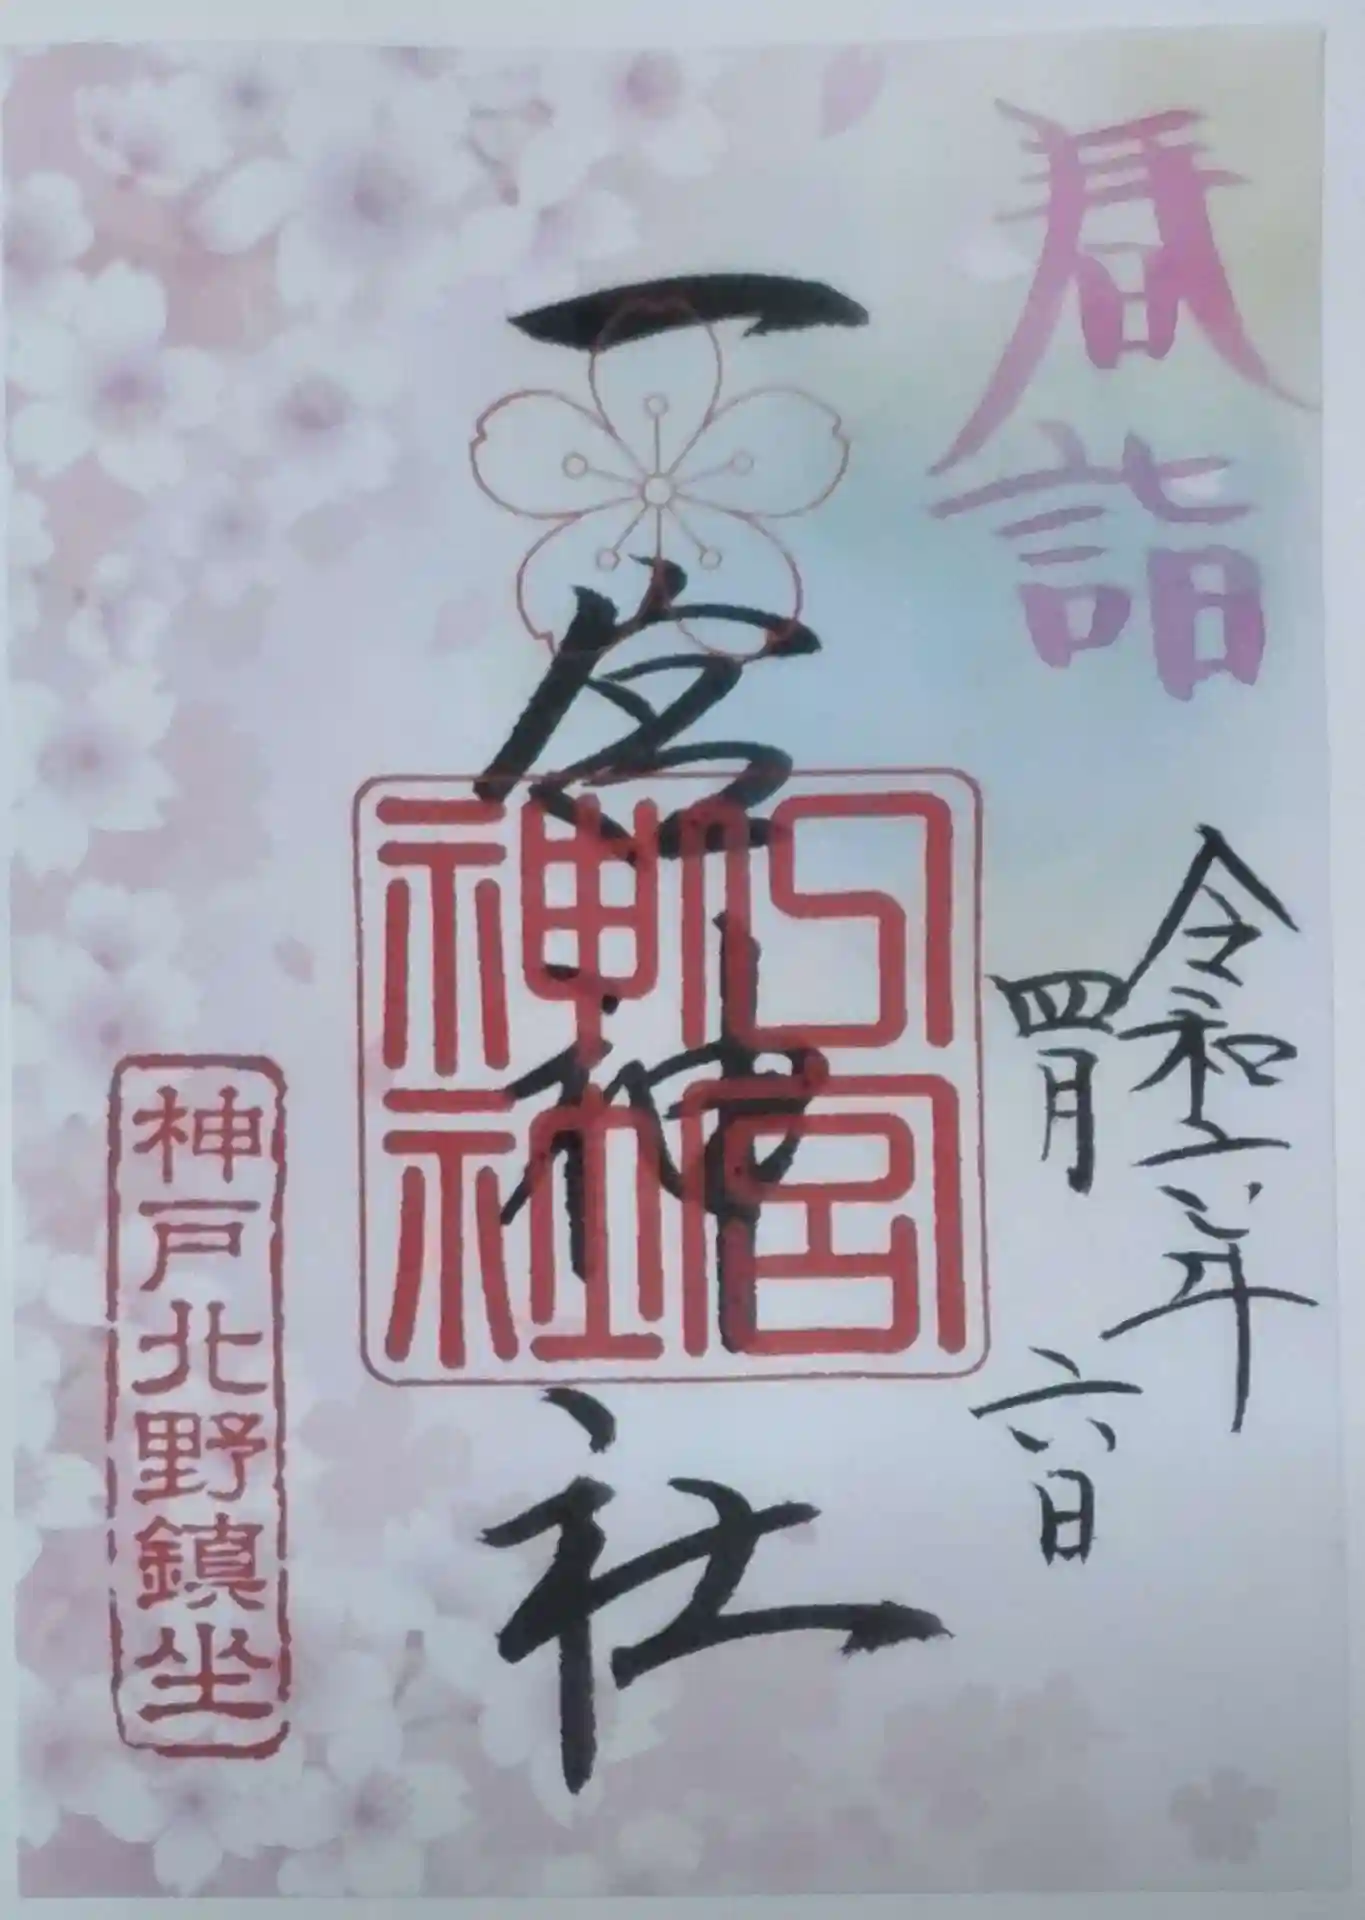 春詣
令和六年
四月六日
一宮神社
宮神社
神戸北野鎮坐